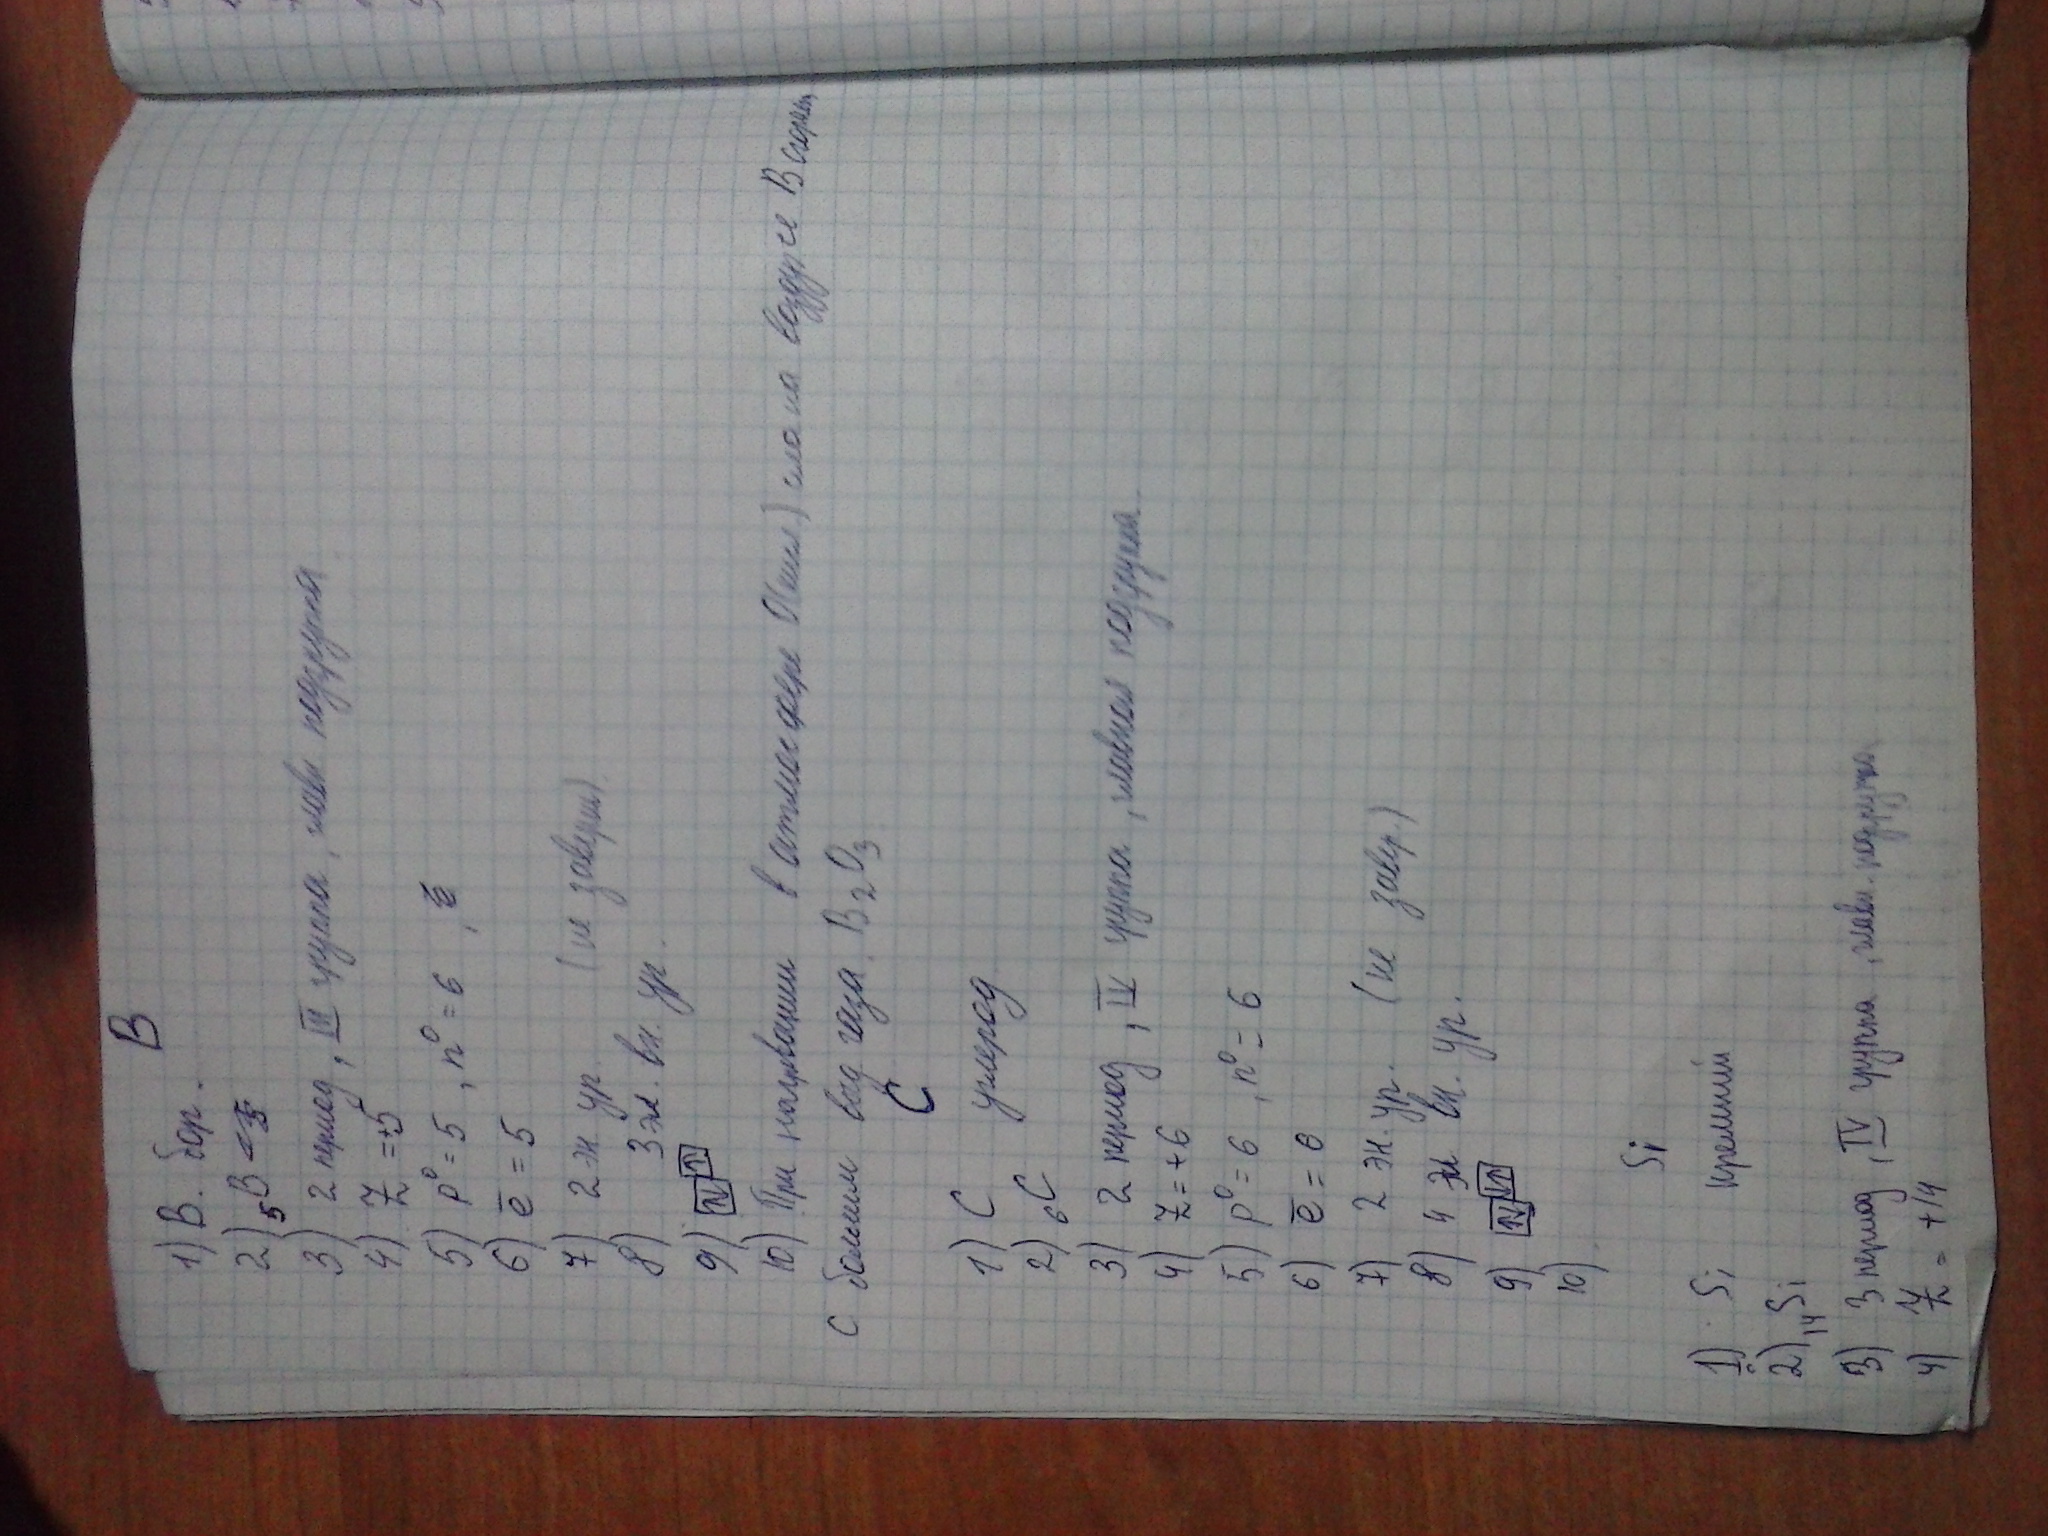 B
1) B. бор.
2) ₅B
3) 2 период, III группа, главн подгрупа.
4) Z = +5
5) p⁰ = 5, n⁰ = 6,
6) e̅ = 5
7) 2 эн ур. (не заверш).
8) 3 эл. вн. ур.
9)
10) При нагревании в атмосфере О(кисл) или на воздухе B сгорает
с больши выд газа. B₂O₃
C
1) C углерод
2) ₆C
3) 2 период, IV группа, главной подгрупа.
4) Z = +6
5) p⁰ = 6, n⁰ = 6
6) e̅ = 6
7) 2 эн. ур. (не завер.)
8) 4 эл вн. ур.
9)
10)
Si
1) Si кремний
2) ₁₄Si
3) 3 период, IV группа, главн. подгрупа
4) Z = +14